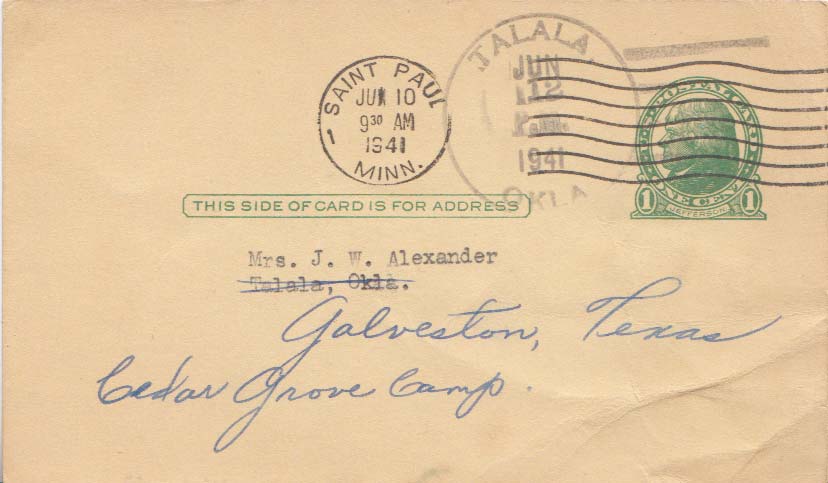 SAINT PAUL
1
JUN 10
9 30 AM
1941
MINN.
TALALA,
JUN
12
P.M.
1941
OKLA
U.S. POSTAL CARD
ONE CENT
1 JEFFERSON 1
THIS SIDE OF CARD IS FOR ADDRESS
Mrs. J. W. Alexander
Talala, Okla.
Galveston, Texas
Cedar Grove Camp.